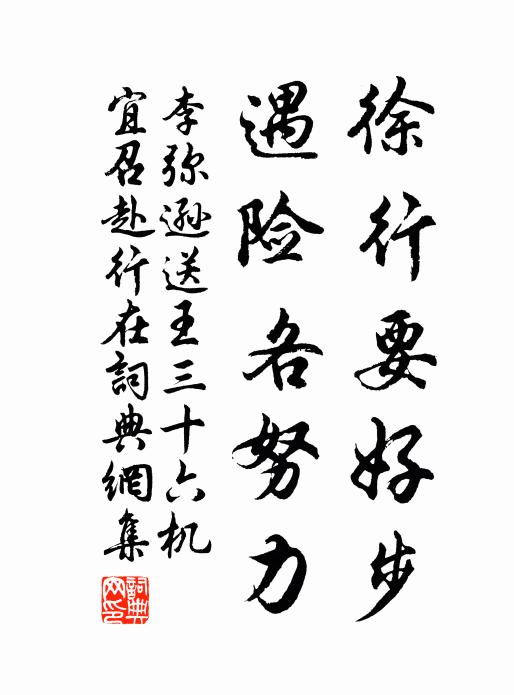 徐行要好步
遇险各努力
李弥逊送王三十六机
宜召赴行在詞典網集
詞典網印